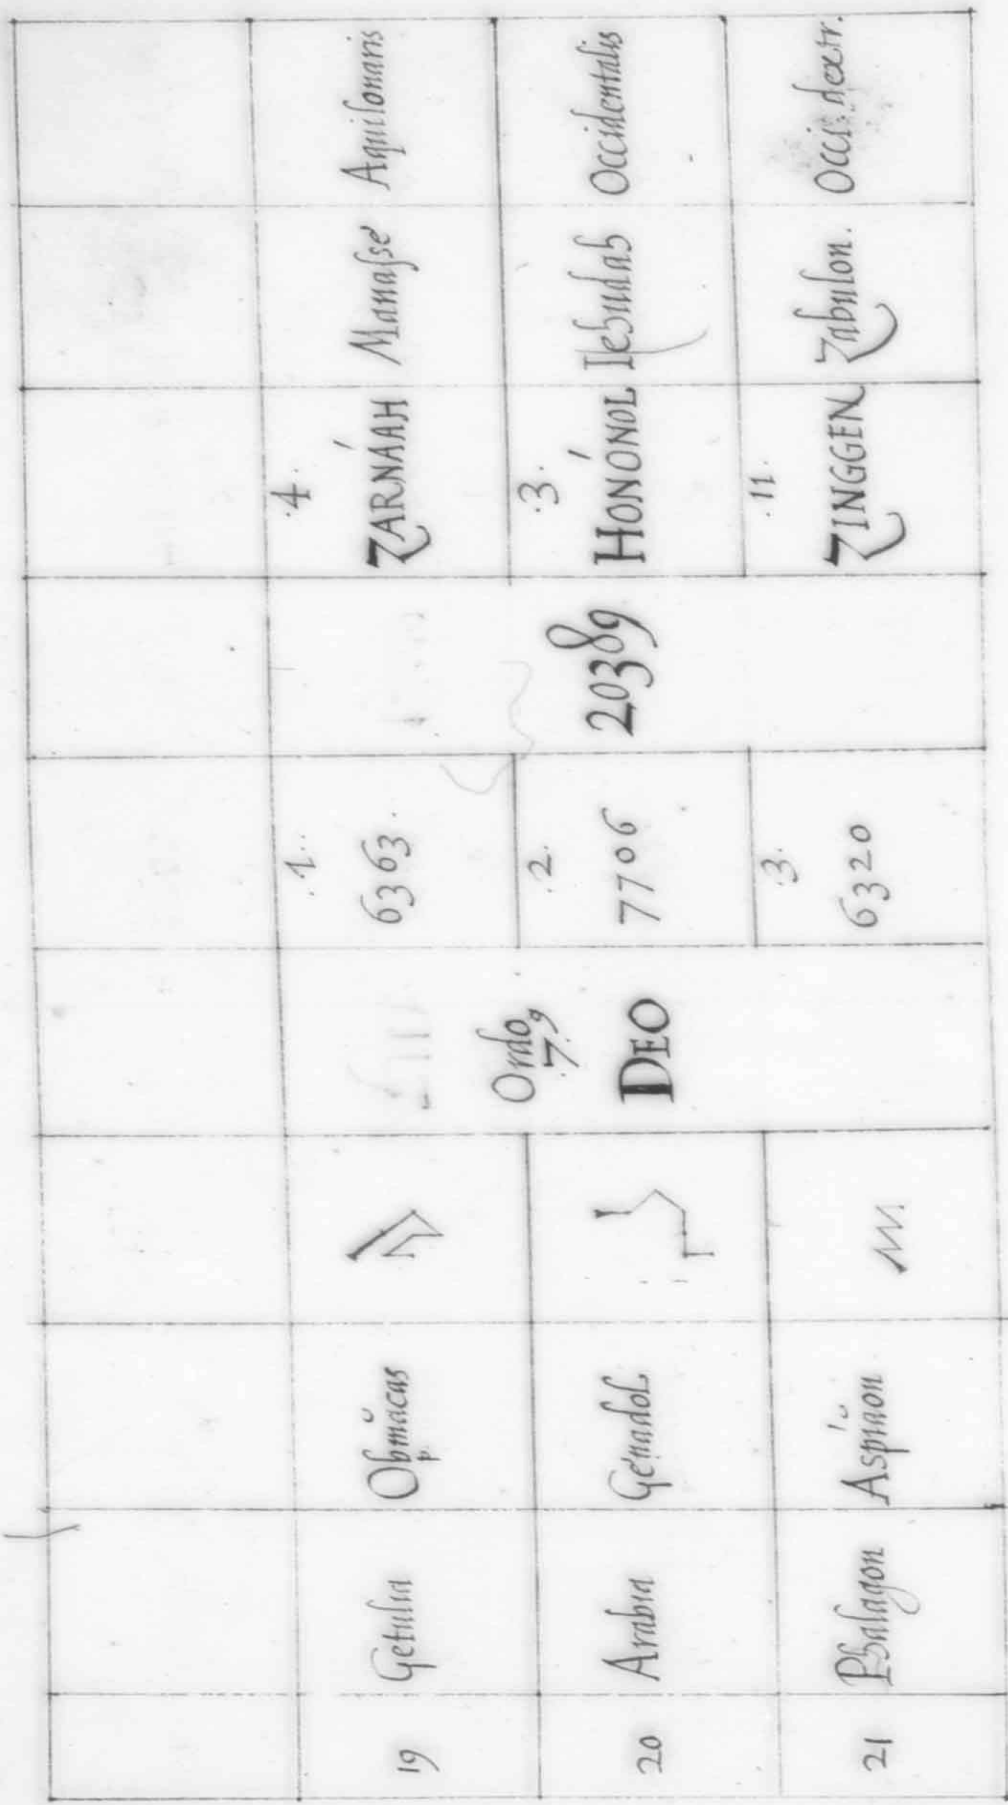 19 Getulia Obmacas .1. 6363. .4. ZARNÁAH Manasse Aquilonaris
20 Arabia Genadol Ordo .7.9 DEO .2. 7706 20389 .3. HONÓNOL Iehudah Occidentalis
21 Phalagon Aspiaon .3. 6320 .11. ZINGGEN Zabulon. Occi: dextr.